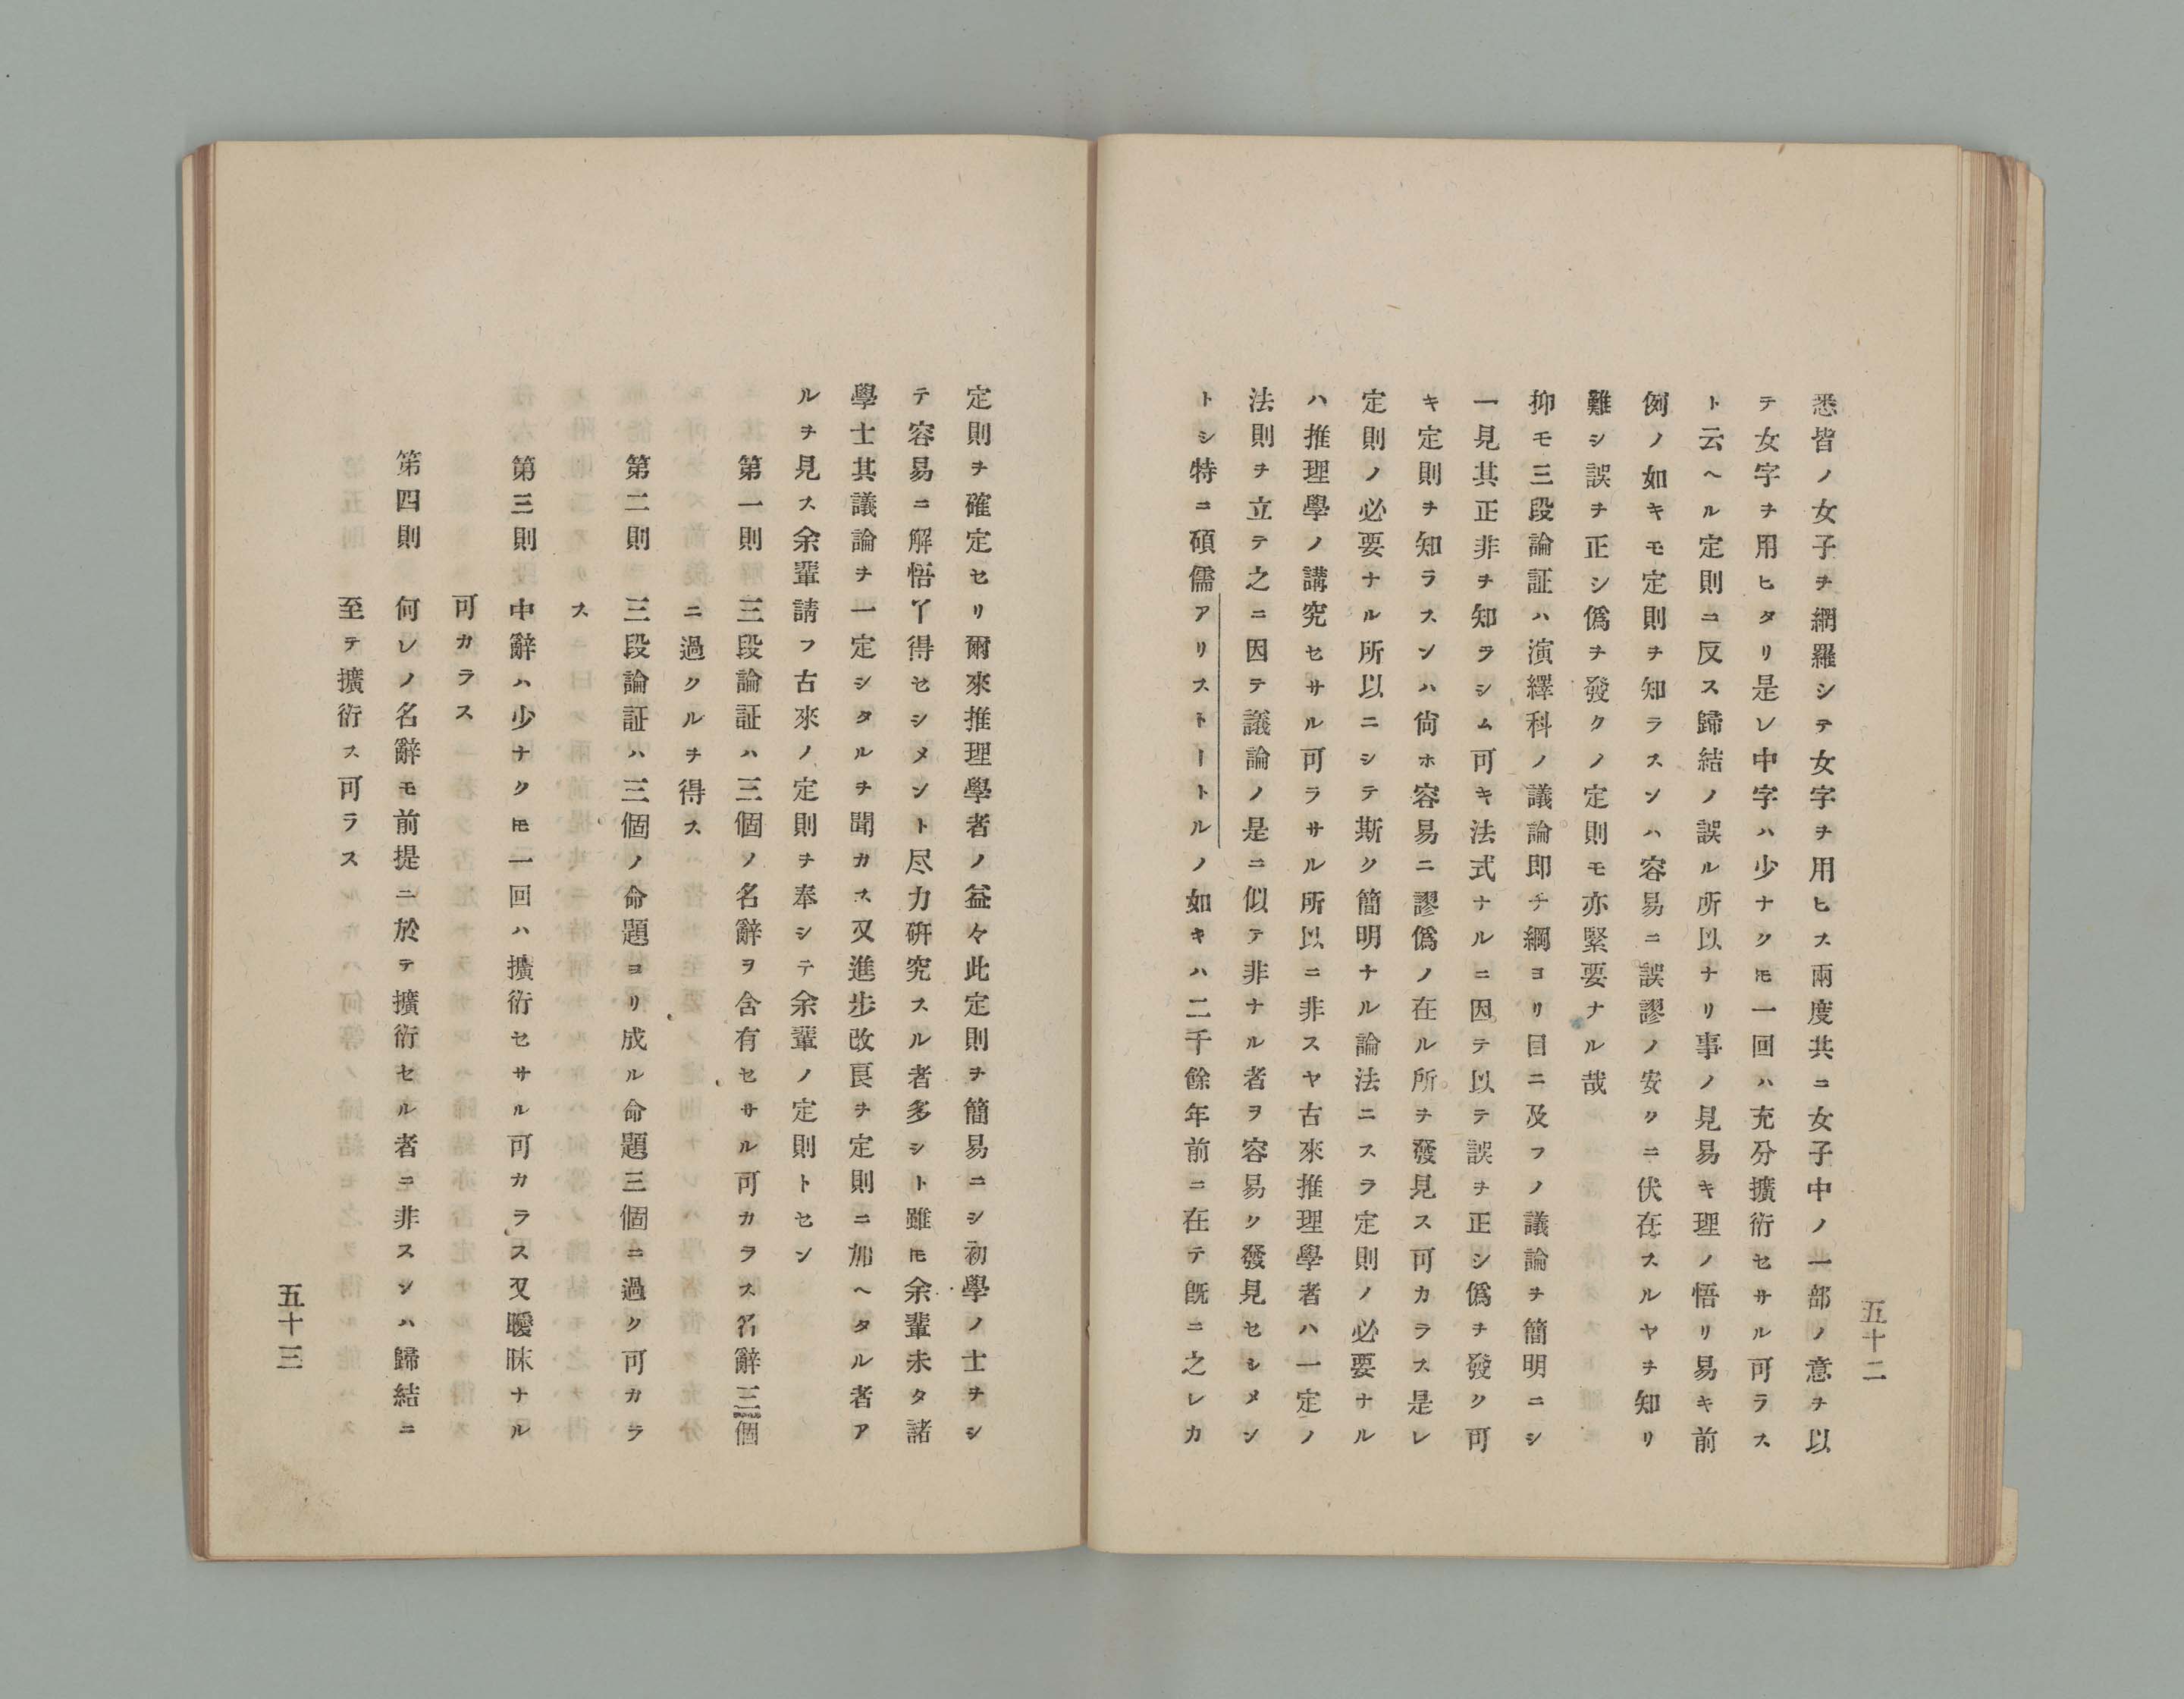 五十二
悉皆ノ女子ヲ網羅シテ女字ヲ用ヒス兩度共ニ女子中ノ一部ノ意ヲ以
テ女字ヲ用ヒタリ是レ中字ハ少ナクモ一回ハ充分擴衍セサル可ラス
ト云ヘル定則ニ反ス歸結ノ誤ル所以ナリ事ノ見易キ理ノ悟リ易キ前
例ノ如キモ定則ヲ知ラスンハ容易ニ誤謬ノ安クニ伏在スルヤヲ知リ
難シ誤ヲ正シ僞ヲ發クノ定則モ亦緊要ナル哉
抑モ三段論証ハ演繹科ノ議論即チ綱ヨリ目ニ及フノ議論ヲ簡明ニシ
一見其正非ヲ知ラシム可キ法式ナルニ因テ以テ誤ヲ正シ僞ヲ發ク可
キ定則ヲ知ラスンハ尙ホ容易ニ謬僞ノ在ル所ヲ發見ス可カラス是レ
定則ノ必要ナル所以ニシテ斯ク簡明ナル論法ニスラ定則ノ必要ナル
ハ推理學ノ講究セサル可ラサル所以ニ非スヤ古來推理學者ハ一定ノ
法則ヲ立テ之ニ因テ議論ノ是ニ似テ非ナル者ヲ容易ク發見セシメン
トシ特ニ碩儒アリストートルノ如キハ二千餘年前ニ在テ旣ニ之レカ
定則ヲ確定セリ爾來推理學者ノ益々此定則ヲ簡易ニシ初學ノ士ヲシ
テ容易ニ解悟丫得セシメント尽力硏究スル者多シト雖モ余輩未タ諸
學士其議論ヲ一定シタルヲ聞カス又進步改良ヲ定則ニ加ヘタル者ア
ルヲ見ス余輩請フ古來ノ定則ヲ奉シテ余輩ノ定則トセン
第一則　三段論証ハ三個ノ名辭ヲ含有セサル可カラス名辭三個
ニ過クルヲ得ス
第二則　三段論証ハ三個ノ命題ヨリ成ル命題三個ニ過ク可カラ
ス
第三則　中辭ハ少ナクモ一回ハ擴衍セサル可カラス又曖昧ナル
可カラス
第四則　何レノ名辭モ前提ニ於テ擴衍セル者ニ非スンハ歸結ニ
至テ擴衍ス可ラス
五十三